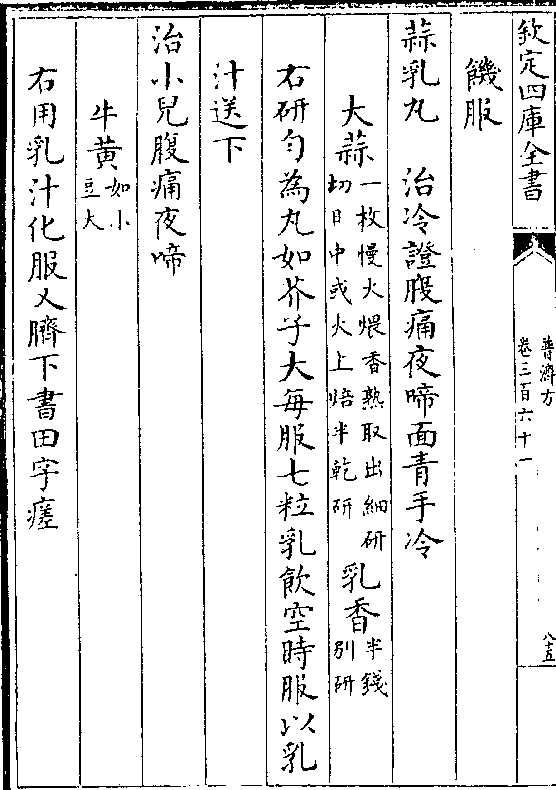 欽定四庫全書
普濟方
卷三百六十一
八五
饑服
蒜乳丸　治冷證腹痛夜啼面青手冷
大蒜一枚慢火煨香熟取出細研切日中或火上焙半乾研　乳香半錢别研
右研勻為丸如芥子大每服七粒乳飲空時服以乳
汁送下
治小兒腹痛夜啼
牛黄如小豆大
右用乳汁化服又臍下書田字瘥